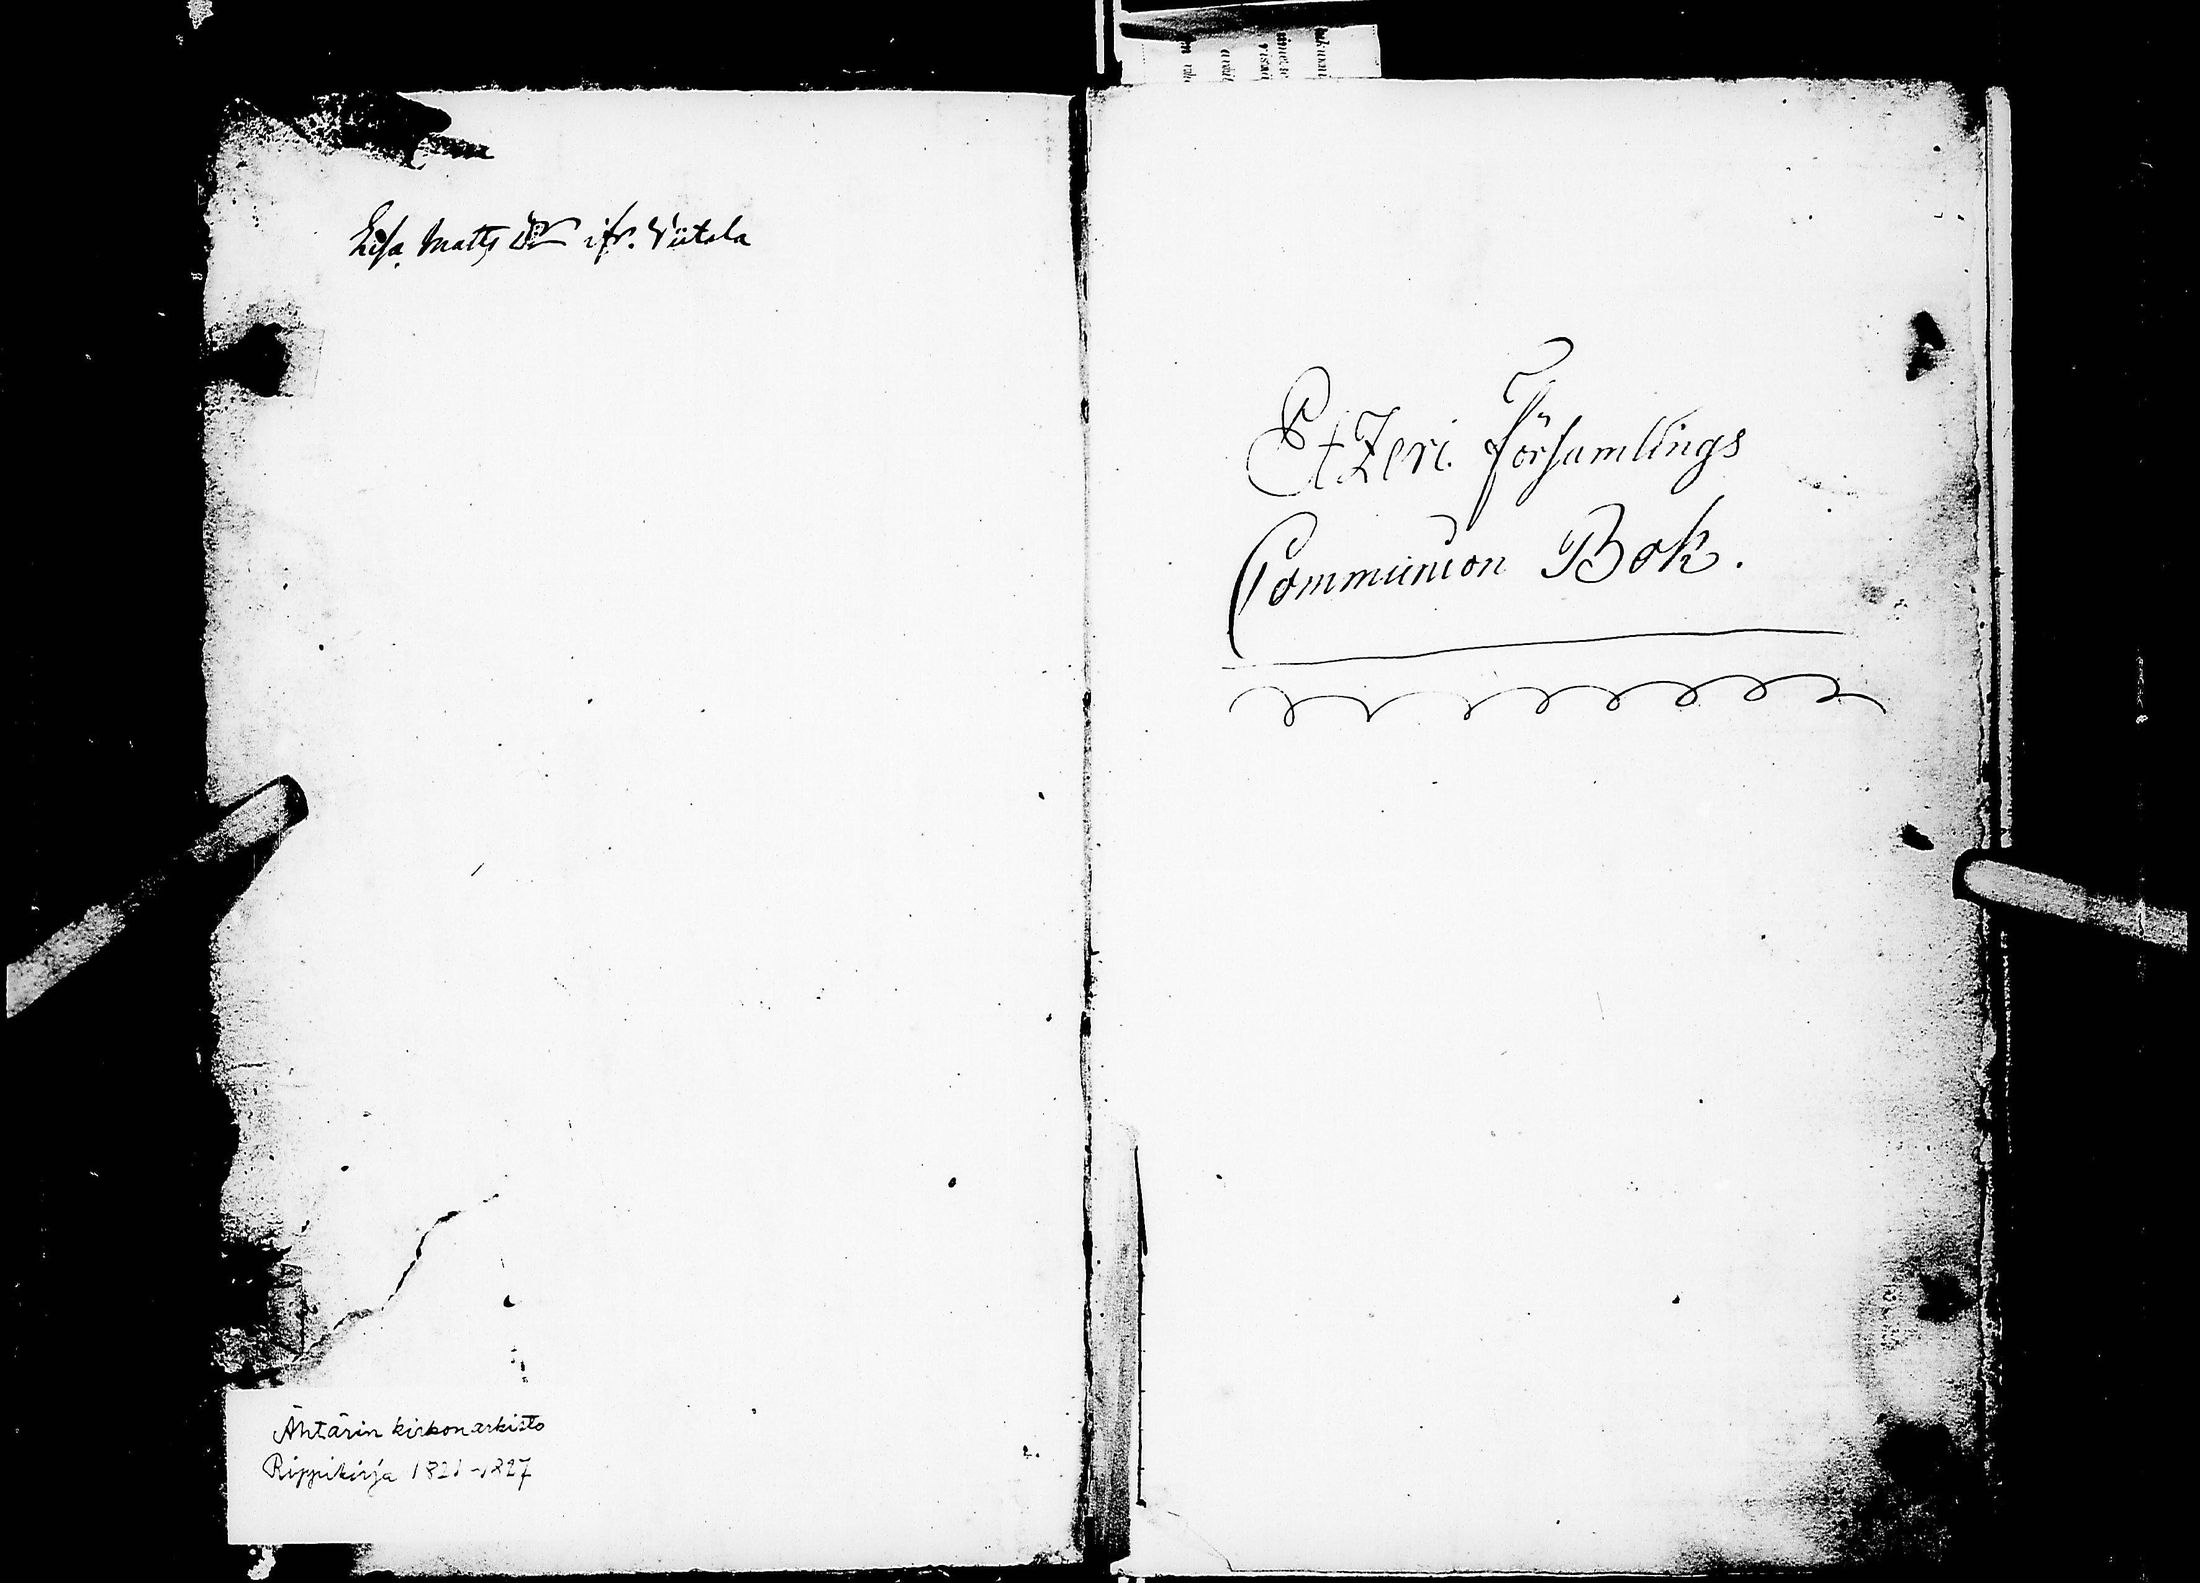 Lisa Matts dr ifr. Viitala
Etzeri Församlings
Communion Bok.
Ähtärin kirkonarkisto
Rippikirja 1821-1827